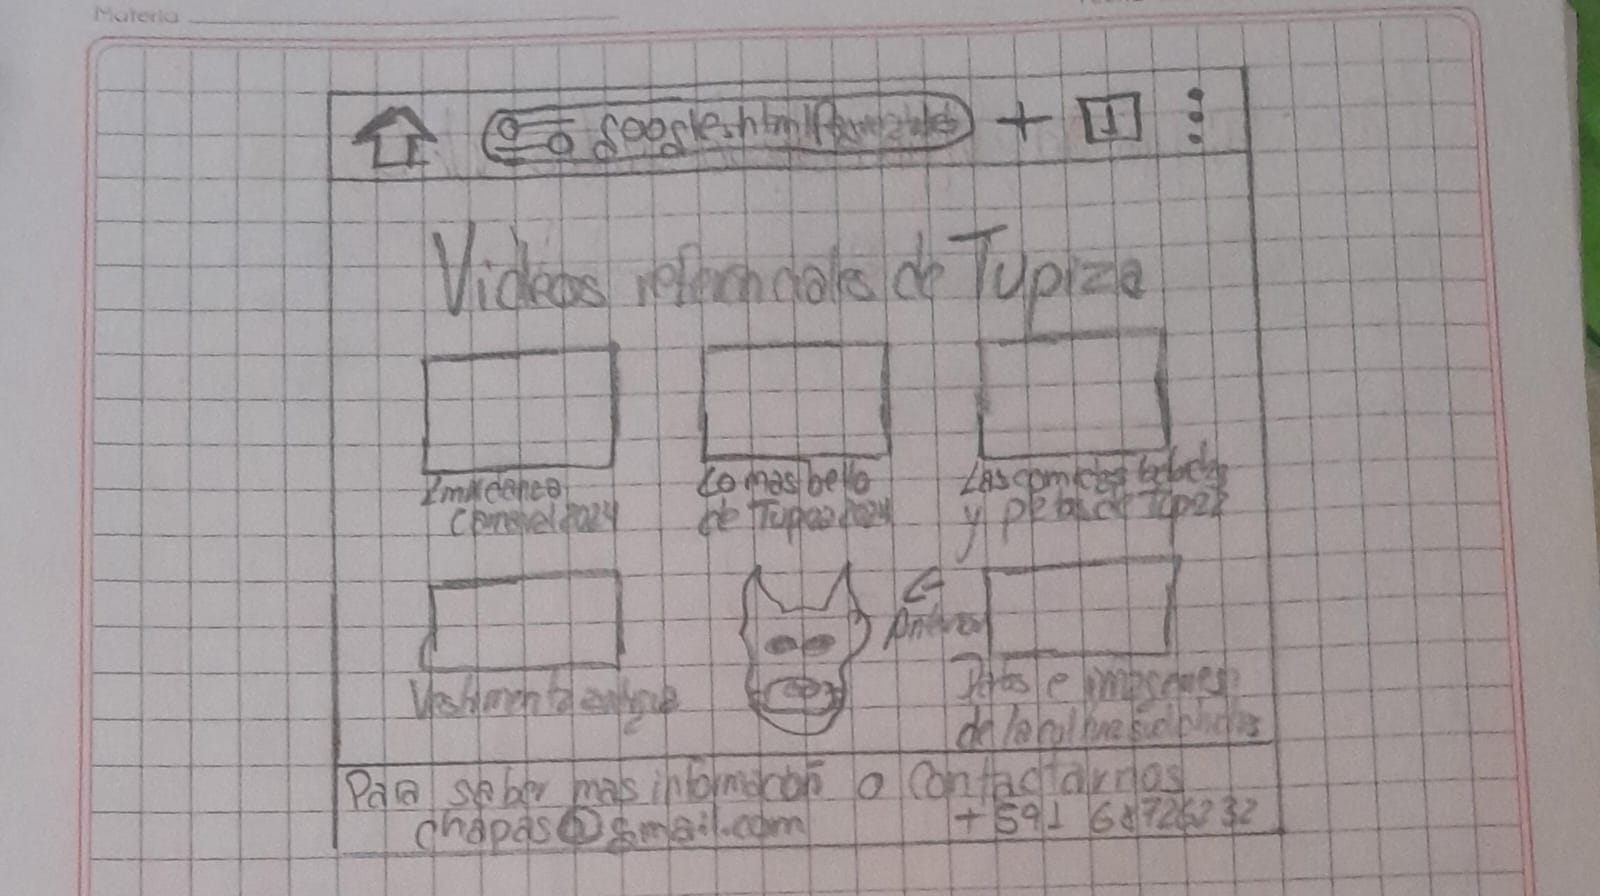 Materia
1
Videos referenciales de Tupiza
Lo mas bello
carnaval 2024
de Tupiza 2024
Las comidas
y de Tupiza
Vestimenta antigua
Datos e imagenes
de la cultura
Para saber mas información o contactarnos
chapas@gmail.com
+591 68726232